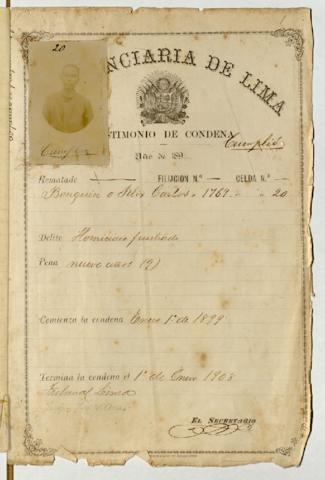 20
NCIARIA DE LIMA
TIMONIO DE CONDENA
Cumplió
Cumplió
Año de 189
Rematado FILIACION N.º CELDA N.º
o Carlos 1769 20
Delito Homicidio frustrado
Pena nueve años (9)
Comienza la condena Enero 1º de 1899
Termina la condena el 1º de Enero 1908
Tribunal Lima
EL SECRETARIO